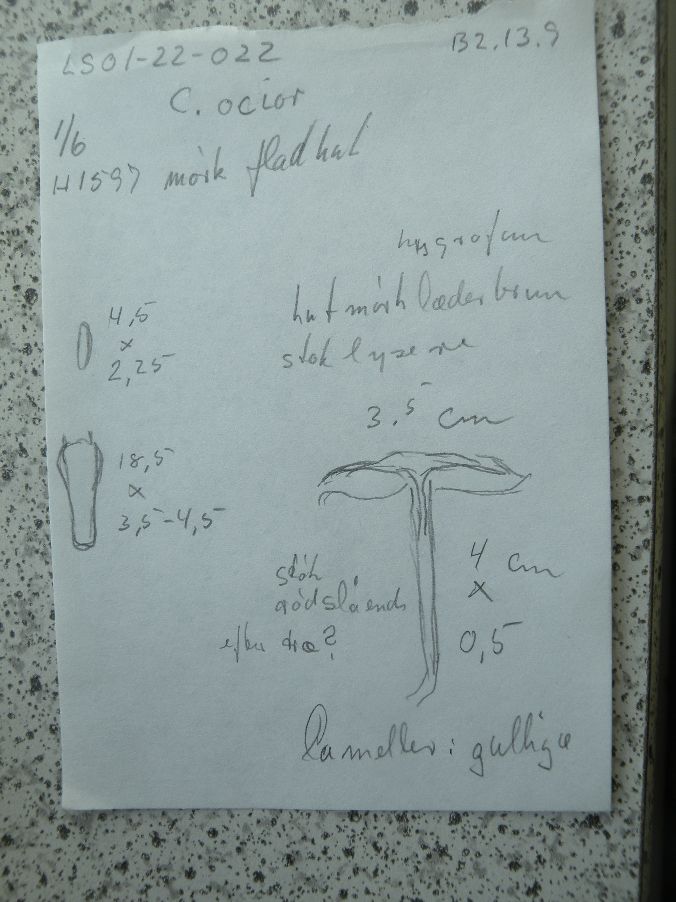 LS01-22-022
B2.13.9
C. ocior
1/6
H1597 mörk fladhat
hygrofan
hat mörk læderbrun
stok lysere
4,5
x
2,25
3.5 cm
18,5
x
3,5-4,5
4 cm
x
0,5
stok
rödslående
efter
Lameller: gullige